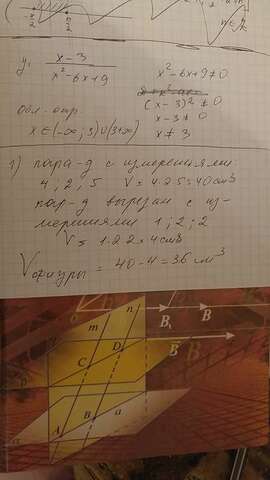 π/2
y = x-3 / x²-6x+9
x²-6x+9≠0
(x-3)²≠0
x-3≠0
x≠3
Обл. опр.
x∈(-∞;3)∪(3+∞)
1) пара-д с измерениями:
4; 2; 5 V = 4·2·5=40см³
пар-д вырезан с из-
мерениями 1; 2; 2
V = 1·2·2=4см³
Vфигуры = 40-4=36 см³
m
n
B₁
B
D
C
B
A
B
a
a